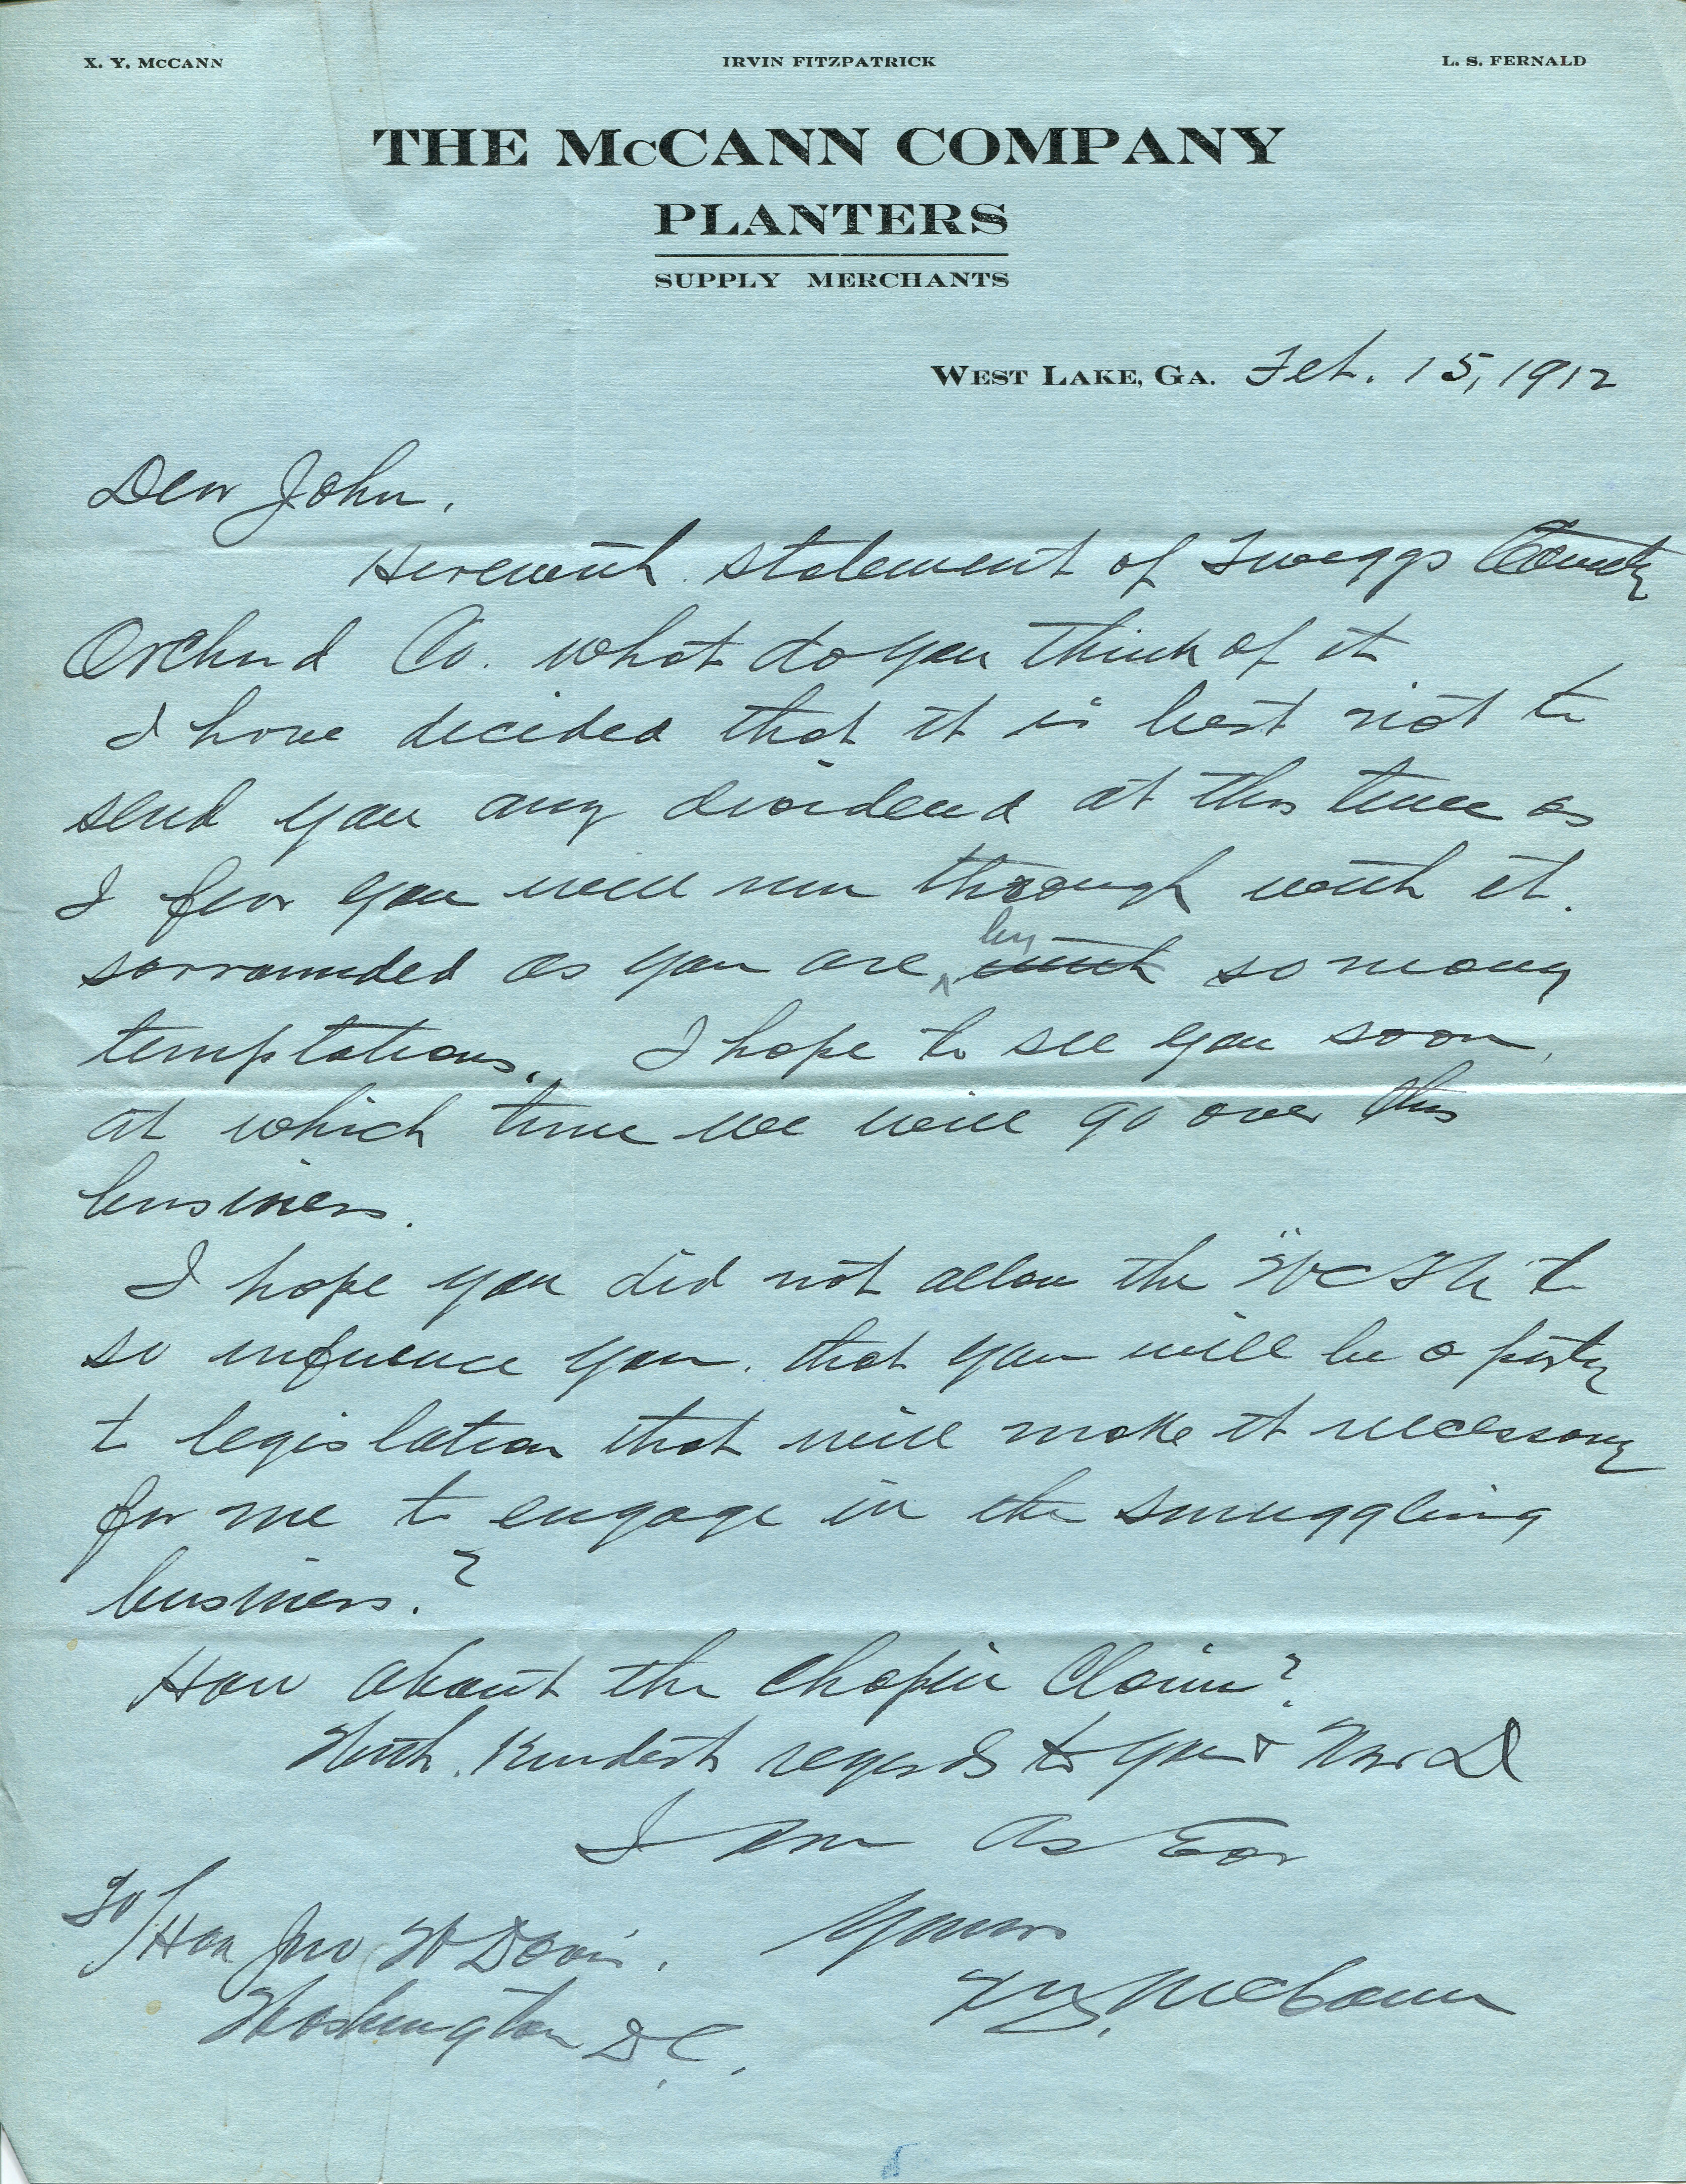 X. Y. McCANN IRVIN FITZPATRICK L. S. FERNALD
THE McCANN COMPANY
PLANTERS
SUPPLY MERCHANTS
WEST LAKE, GA. Feb. 15, 1912
Dear John,
Herewith statement of Twiggs County
Orchard Co. what do you think of it
I have decided that it is best not to
send you any dividend at this time as
I fear you will run through with it.
sorrounded as you are, by with so many
temptations. I hope to see you soon,
at which time we will go over this
business.
I hope you did not allow the "WCTU" to
so infuence you. that you will be a party
to legislation that will make it necessary
for me to engage in the smuggling
business.?
How about the Chapin Claim?
With. Kindest regards to you & Mrs D
I am As Ever
Yours
X Y. McCann
To/Hon Jno W Davis.
Washington D.C.